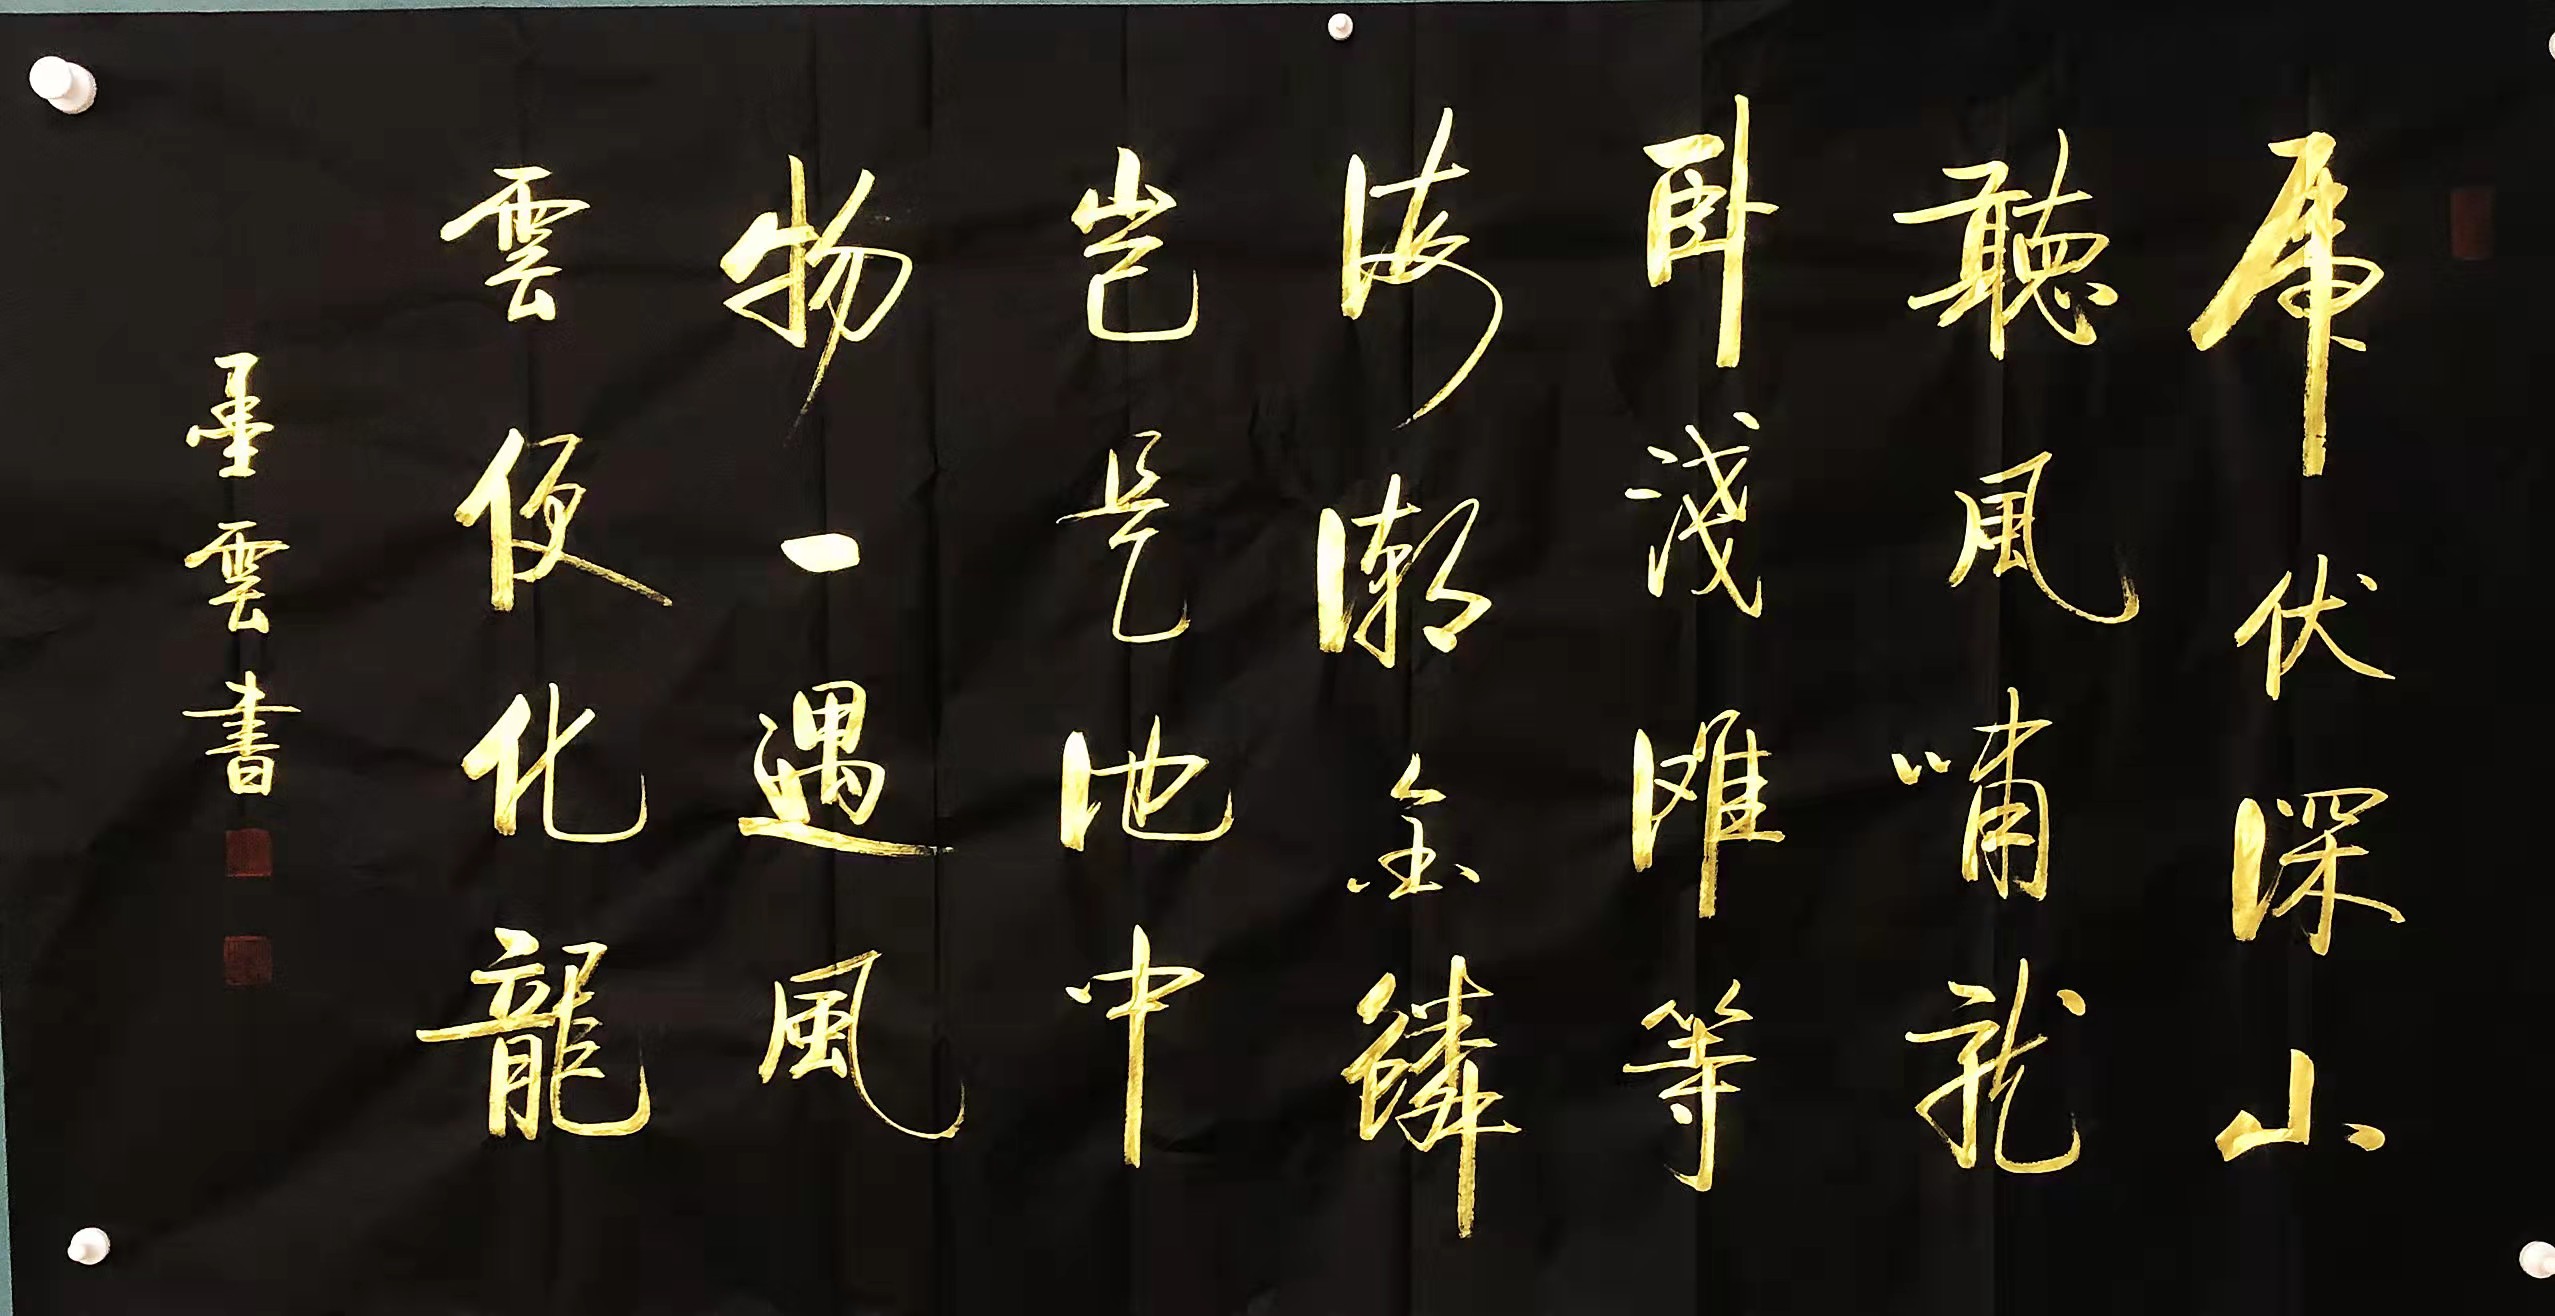 虎伏深山
聽風嘯龍
卧淺滩等
海潮金鱗
岂是池中
物一遇風
雲便化龍
墨雲書